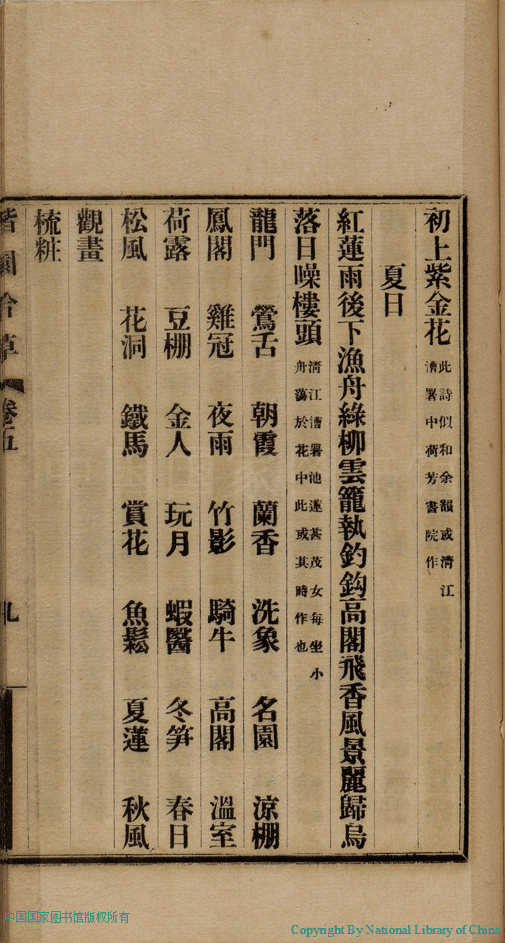 初上紫金花 此詩似和余韻或清江漕署中荷芳書院作
夏日
紅蓮雨後下漁舟綠柳雲籠執釣鈎高閣飛香風景麗歸鳥
落日噪樓頭 清江漕署池蓮甚茂女每坐小舟蕩於花中此或其時作也
龍門 鶯舌 朝霞 蘭香 洗象 名園 涼棚
鳳閣 雞冠 夜雨 竹影 騎牛 高閣 溫室
荷露 豆棚 金人 玩月 蝦醫 冬笋 春日
松風 花洞 鐵馬 賞花 魚鬆 夏蓮 秋風
觀畫
梳粧
卷五
九
中国国家图书馆版权所有
Copyright By National Library of China